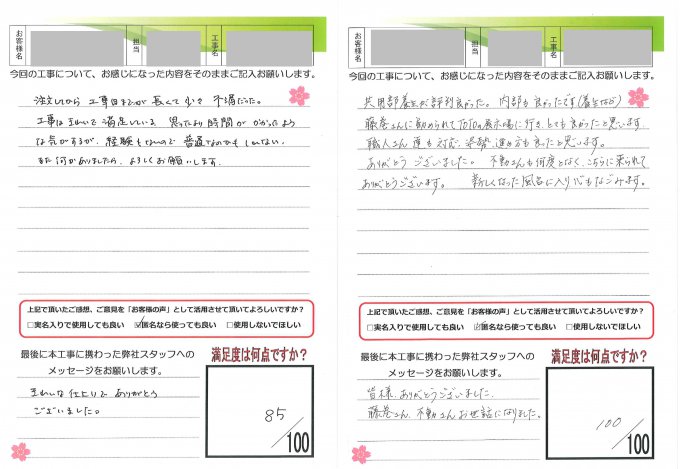 お客様名
担当
工事名
今回の工事について、お感じになった内容をそのままご記入お願いします。
注文してから工事日までが長くて少し不満だった。
工事は全体的に満足している 思ったより時間がかかったよう
な気がするが、経験もないので普通なのかもしれない。
また何かありましたら、よろしくお願いします。
上記で頂いたご感想、ご意見を「お客様の声」として活用させて頂いてよろしいですか？
□実名入りで使用しても良い ☑匿名なら使っても良い □使用しないでほしい
最後に本工事に携わった弊社スタッフへの
メッセージをお願いします。
きれいな仕上りで ありがとう
ございました。
満足度は何点ですか？
85
/100
お客様名
担当
工事名
今回の工事について、お感じになった内容をそのままご記入お願いします。
共用部養生が評判良かった。内部も良かったです(養生など)
藤巻さんに勧められてTOTOの展示場に行き、とても良かったと思います。
職人さん達も対応、姿勢、進め方も良かったと思います。
ありがとうございました。 不動さんも何度となく、こちらに来られて
ありがとうございます。 新しくなった風呂に入り心もなごみます。
上記で頂いたご感想、ご意見を「お客様の声」として活用させて頂いてよろしいですか？
□実名入りで使用しても良い ☑匿名なら使っても良い □使用しないでほしい
最後に本工事に携わった弊社スタッフへの
メッセージをお願いします。
皆様、ありがとうございました。
藤巻さん、不動さんお世話になりました。
満足度は何点ですか？
100
/100